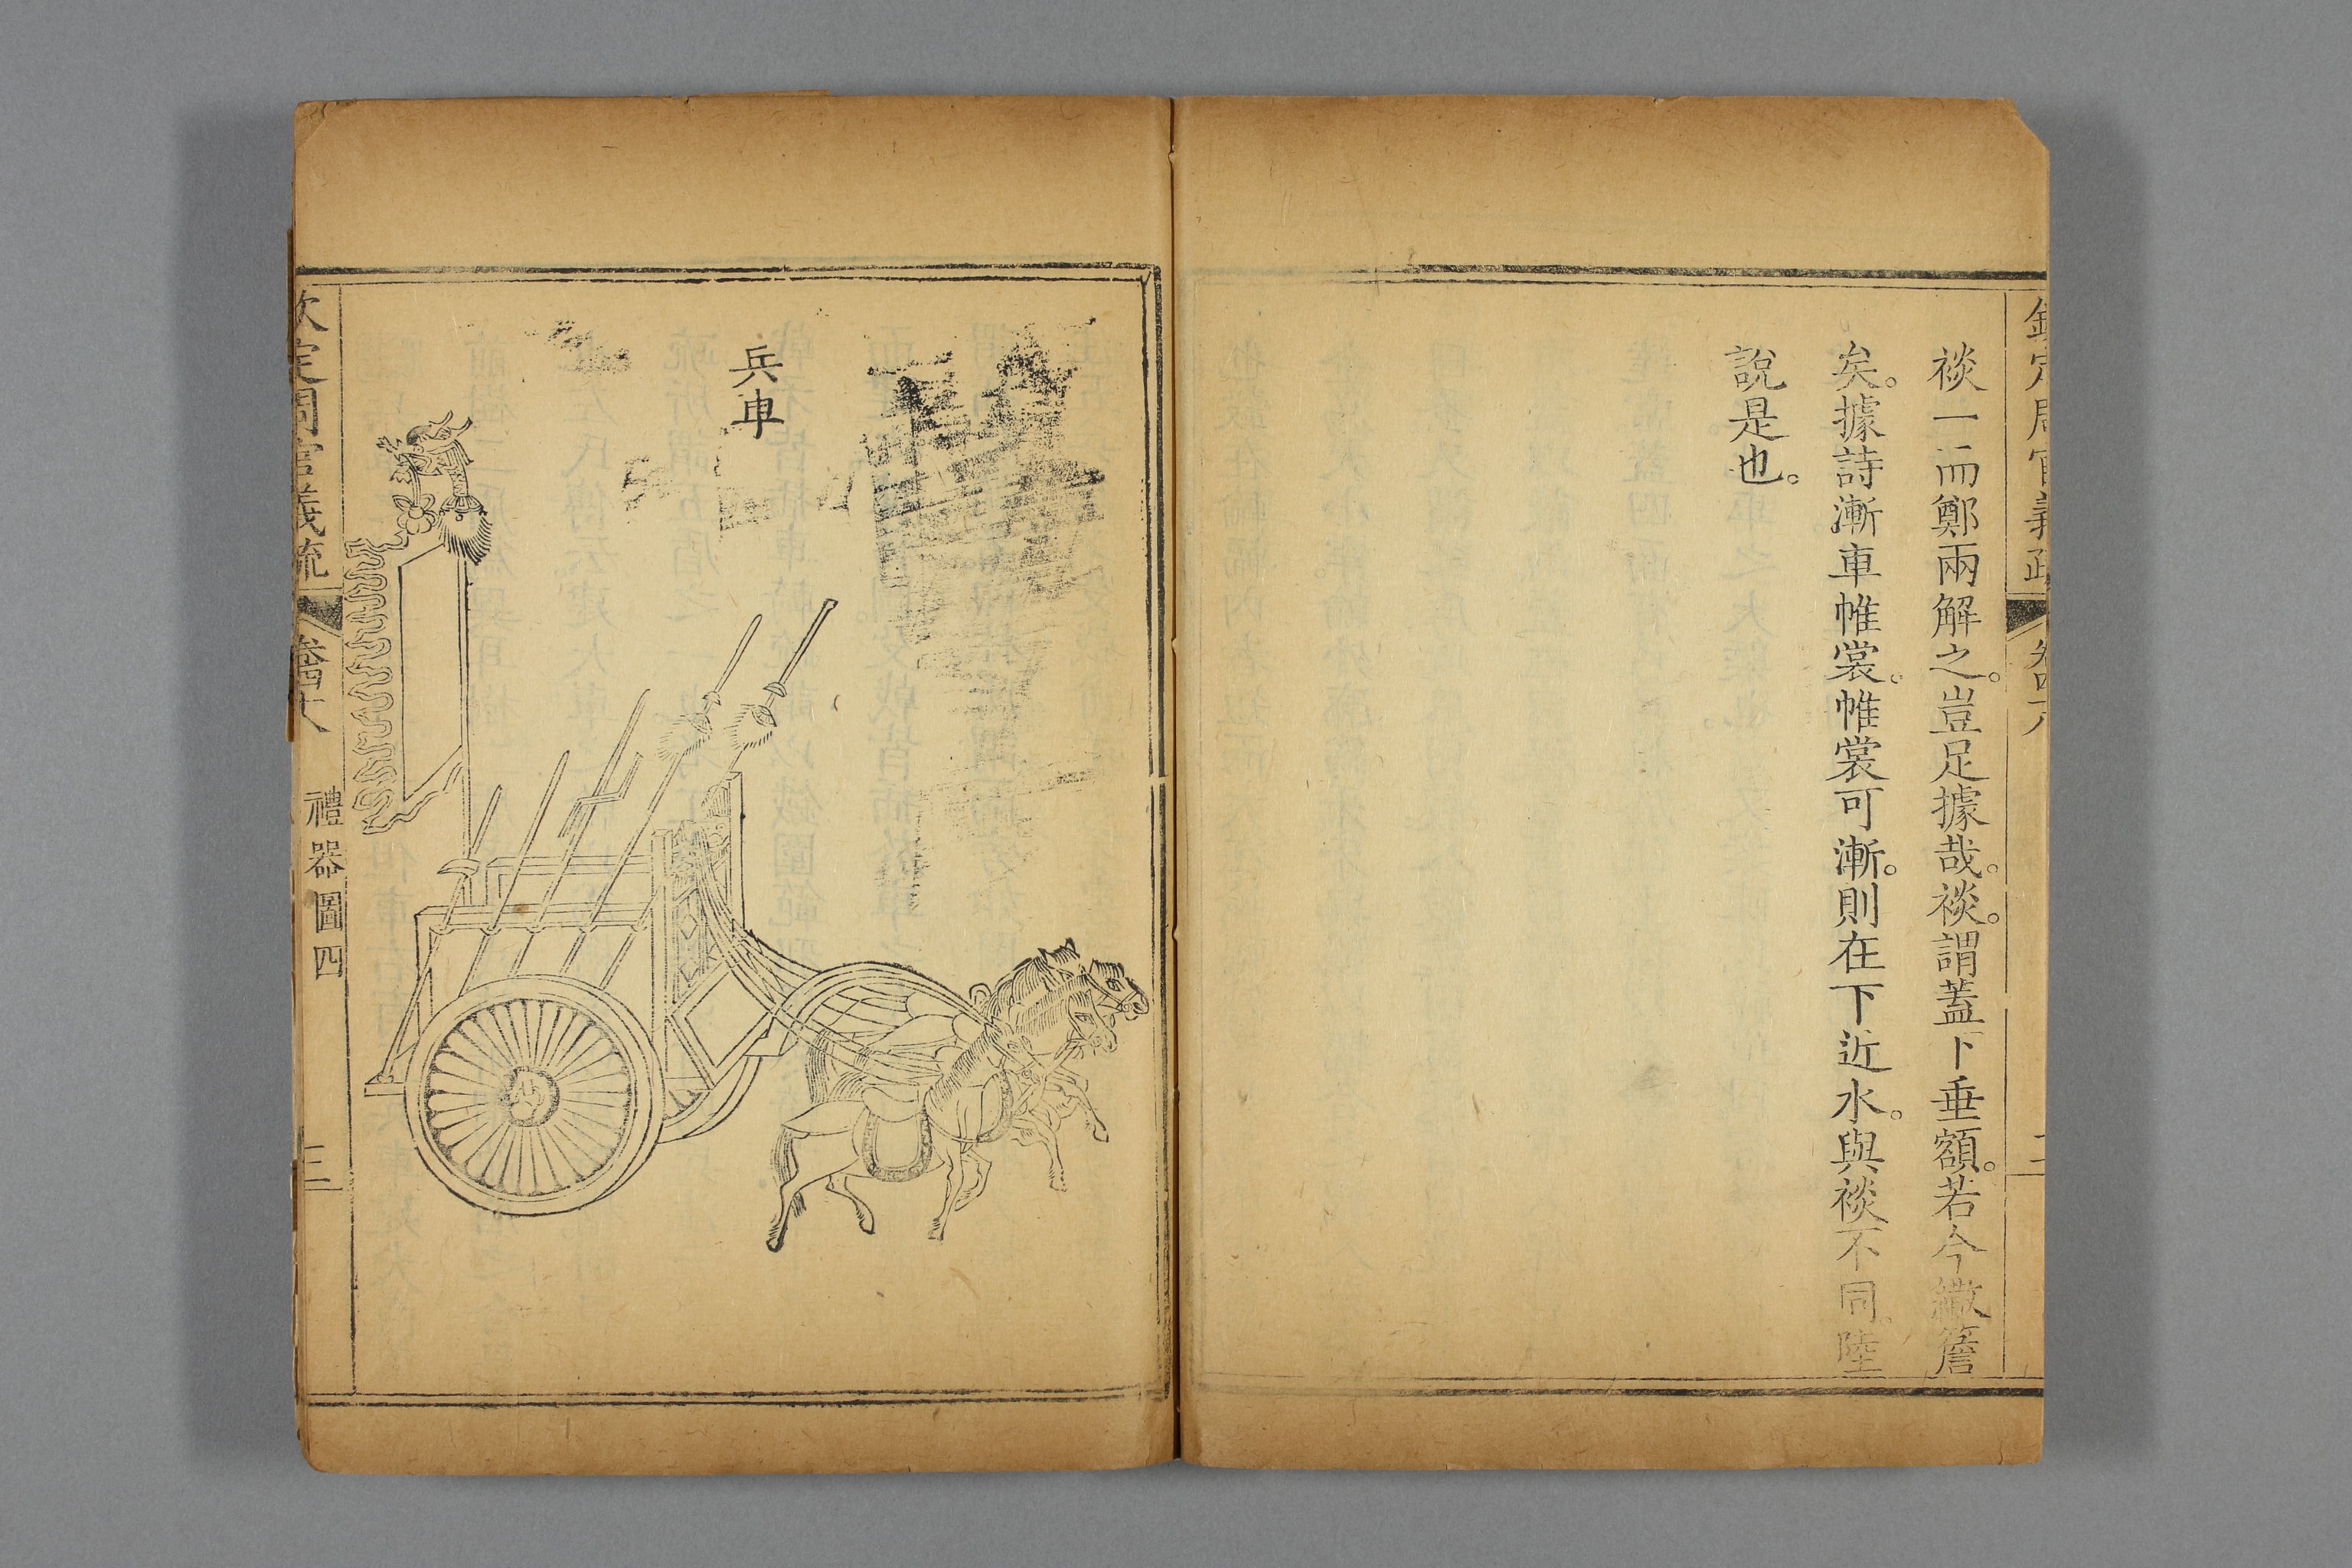 欽定周官義疏 卷四十八
裧一而鄭兩解之。豈足據哉。裧。謂蓋下垂額。若今繖簷
矣。據詩漸車帷裳。帷裳可漸。則在下近水。與裧不同。陸
說是也。
兵車
欽定周官義疏 卷四十八 禮器圖四 三